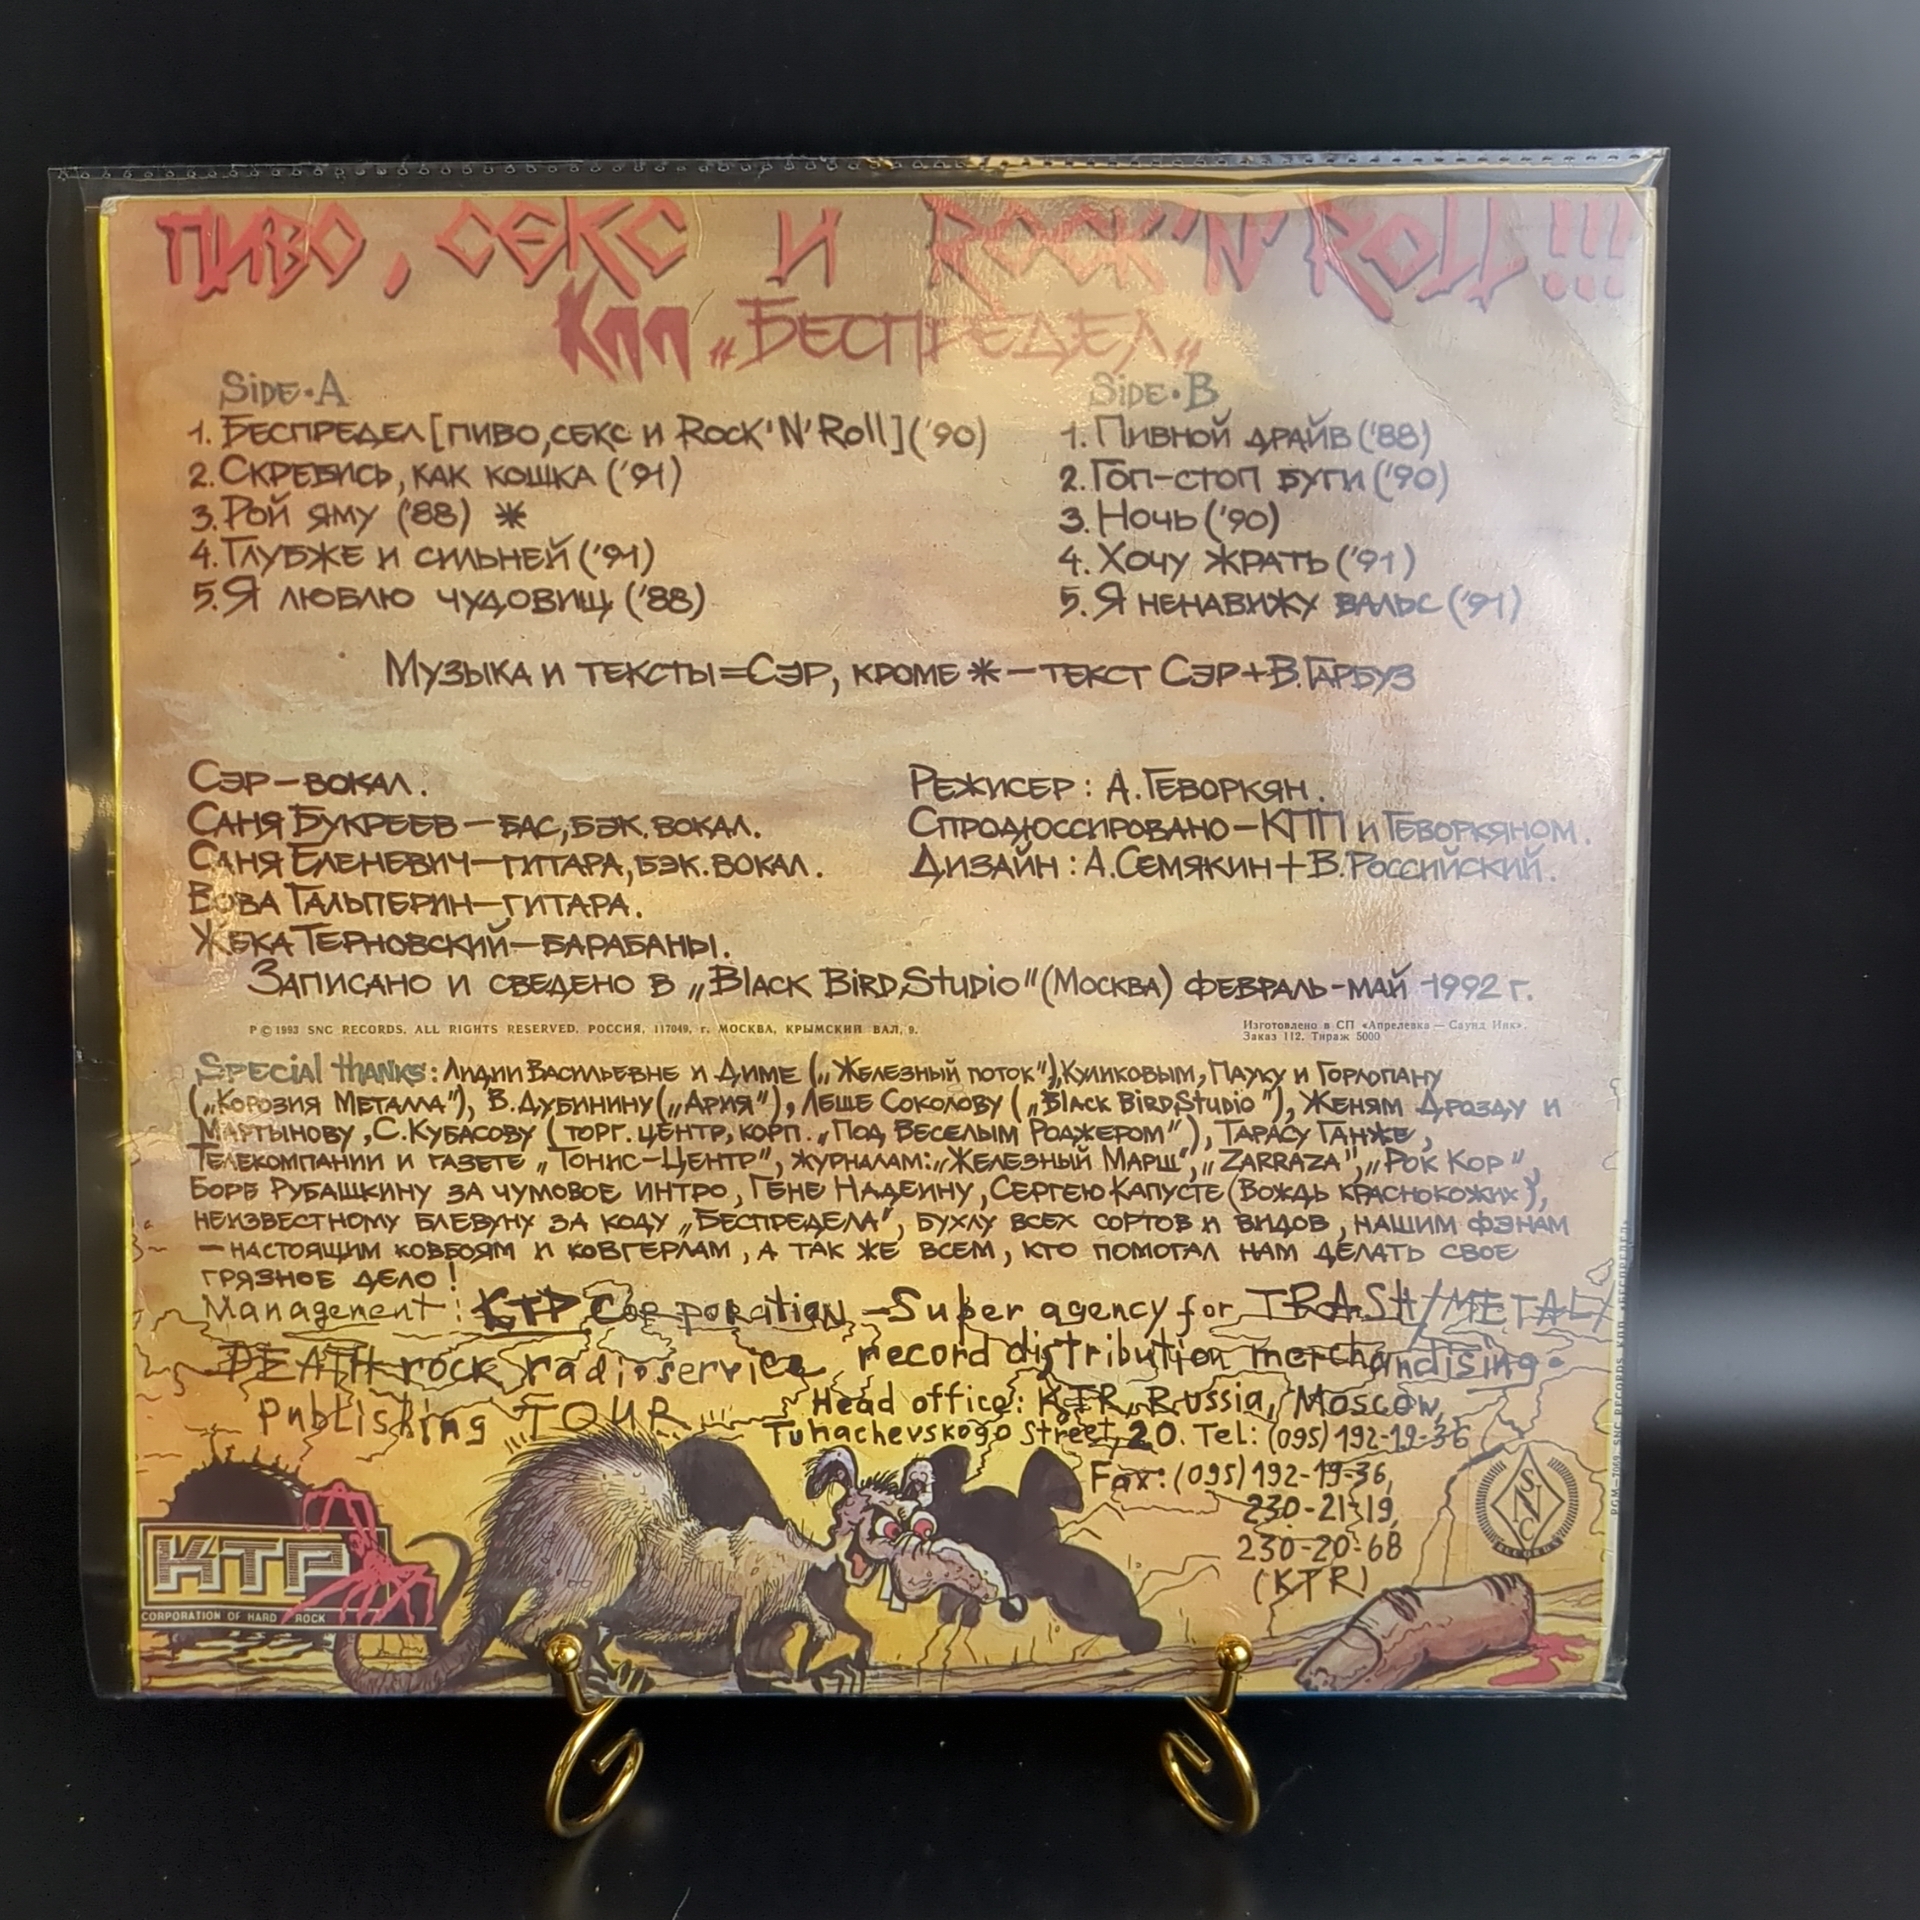 ПИВО, СЕКС И ROCK'N'ROLL!!!
КПП „БЕСПРЕДЕЛ„
SIDE•A
1. БЕСПРЕДЕЛ [ПИВО, СЕКС И ROCK'N'ROLL] ('90)
2. СКРЕБИСЬ, КАК КОШКА ('91)
3. РОЙ ЯМУ ('88) *
4. ГЛУБЖЕ И СИЛЬНЕЙ ('91)
5. Я ЛЮБЛЮ ЧУДОВИЩ ('88)
SIDE•B
1. ПИВНОЙ ДРАЙВ ('88)
2. ГОП-СТОП БУГИ ('90)
3. НОЧЬ ('90)
4. ХОЧУ ЖРАТЬ ('91)
5. Я НЕНАВИЖУ ВАЛЬС ('91)
МУЗЫКА И ТЕКСТЫ=СЭР, КРОМЕ * – ТЕКСТ СЭР+В.ГАРБУЗ
СЭР – ВОКАЛ.
САНЯ БУКРЕЕВ – БАС, БЭК. ВОКАЛ.
САНЯ ЕЛЕНЕВИЧ – ГИТАРА, БЭК. ВОКАЛ.
ВОВА ГАЛЬПЕРИН – ГИТАРА.
ЖЕКА ТЕРНОВСКИЙ – БАРАБАНЫ.
РЕЖИСЕР: А. ГЕВОРКЯН.
СПРОДЮССИРОВАНО – КПП И ГЕВОРКЯНОМ.
ДИЗАЙН: А. СЕМЯКИН + В. РОССИЙСКИЙ.
ЗАПИСАНО И СВЕДЕНО В „BLACK BIRD STUDIO" (МОСКВА) ФЕВРАЛЬ-МАЙ 1992 г.
P © 1993 SNC RECORDS. ALL RIGHTS RESERVED. РОССИЯ, 117049, г. МОСКВА, КРЫМСКИЙ ВАЛ, 9.
Изготовлено в СП «Апрелевка — Саунд Инк».
Заказ 112. Тираж 5000
SPECIAL THANKS: ЛИДИИ ВАСИЛЬЕВНЕ И ДИМЕ („ЖЕЛЕЗНЫЙ ПОТОК"), КУЛИКОВЫМ, ПАУКУ И ГОРЛОПАНУ
(„КОРОЗИЯ МЕТАЛЛА"), В. ДУБИНИНУ („АРИЯ"), ЛЕШЕ СОКОЛОВУ („BLACK BIRD STUDIO"), ЖЕНЯМ ДРОЗДУ И
МАРТЫНОВУ, С. КУБАСОВУ (ТОРГ. ЦЕНТР, КОРП. „ПОД ВЕСЕЛЫМ РОДЖЕРОМ"), ТАРАСУ ГАНЖЕ,
ТЕЛЕКОМПАНИИ И ГАЗЕТЕ „ТОНИС-ЦЕНТР", ЖУРНАЛАМ: „ЖЕЛЕЗНЫЙ МАРШ", „ZARRAZA", „РОК КОР",
БОРЕ РУБАШКИНУ ЗА ЧУМОВОЕ ИНТРО, ГЕНЕ НАДЕИНУ, СЕРГЕЮ КАПУСТЕ (ВОЖДЬ КРАСНОКОЖИХ),
НЕИЗВЕСТНОМУ БЛЕВУНУ ЗА КОДУ „БЕСПРЕДЕЛА", БУХЛУ ВСЕХ СОРТОВ И ВИДОВ, НАШИМ ФЭНАМ
– НАСТОЯЩИМ КОВБОЯМ И КОВГЕРЛАМ, А ТАК ЖЕ ВСЕМ, КТО ПОМОГАЛ НАМ ДЕЛАТЬ СВОЕ
ГРЯЗНОЕ ДЕЛО!
Management: KTP Corporation – Super agency for TRASH/METAL/
DEATH rock radioservice record distribution merchandising.
publishing TOUR
Head office: KTR, Russia, Moscow,
Tuhachevskogo Street, 20. Tel: (095) 192-19-36
Fax: (095) 192-19-36,
230-21-19,
230-20-68
(KTR)
KTP
CORPORATION OF HARD ROCK
SNC
RECORDS
SNC RECORDS. КПП «БЕСПРЕДЕЛ»